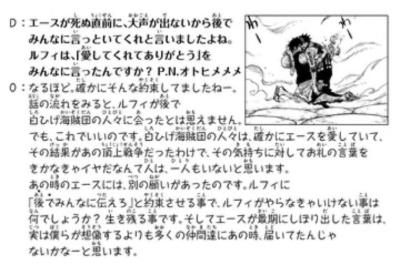 D：エースが死ぬ直前に、大声が出ないから後で
みんなに言っといてくれと言いましたよね。
ルフィは、「愛してくれてありがとう」を
みんなに言ったんですか？P.N.オトヒメメメ
O：なるほど。確かにそんな約束してましたねー。
話の流れをみると、ルフィが後で
白ひげ海賊団の人々に会ったとは思えません。
でも、これでいいのです。白ひげ海賊団の人々は、確かにエースを愛していて、
その結果があの頂上戦争だったわけで、その気持ちに対してお礼の言葉を
きかなきゃイヤだなんて人は、一人もいないと思います。
あの時のエースには、別の願いがあったのです。ルフィに
「後でみんなに伝えろ」と約束させる事で、ルフィがやらなきゃいけない事は
何でしょうか？生き残る事です。そしてエースが最期にしぼり出した言葉は、
実は僕らが想像するよりも多くの仲間達にあの時、届いてたんじゃ
ないかなーと思います。